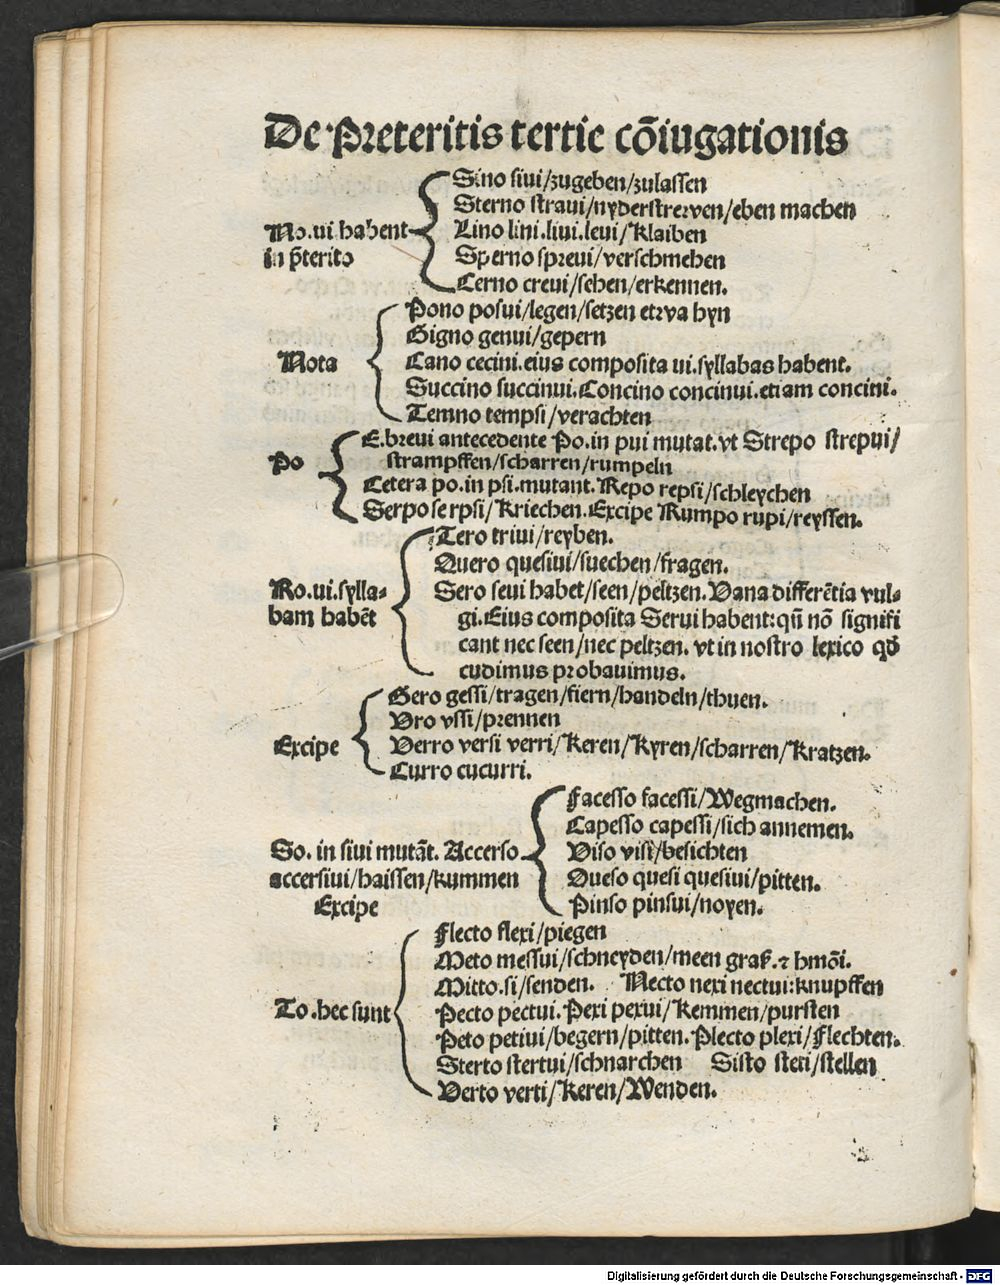 De Preteritis tertie cõiugationis
No.ui habent in p̃terito
Sino siui/zugeben/zulassen
Sterno straui/nyderstrewen/eben machen
Lino lini.liui.leui/Klaiben
Sperno spreui/verschmehen
Cerno creui/sehen/erkennen.
Nota
Pono posui/legen/setzen etwa hyn
Gigno genui/gepern
Cano cecini.eius composita ui.syllabas habent.
Succino succinui.Concino concinui.etiam concini.
Temno tempsi/verachten
Po
E.breui antecedente Po.in pui mutat.vt Strepo strepui/
strampffen/scharren/rumpeln
Cetera po.in psi.mutant.Repo repsi/schleychen
Serpo serpsi/Kriechen.Excipe Rumpo rupi/reyssen.
Ro.ui.sylla-
bam habẽt
Tero triui/reyben.
Quero quesiui/suechen/fragen.
Sero seui habet/seen/peltzen.Vana differẽtia vul-
gi.Eius composita Serui habent:qñ nõ signifi
cant nec seen/nec peltzen.vt in nostro lexico qd̃
cudimus probauimus.
Excipe
Gero gessi/tragen/fiern/handeln/thuen.
Vro vssi/prennen
Verro versi verri/Keren/Kyren/scharren/Kratzen.
Curro cucurri.
So. in siui mutãt. Accerso
accersiui/haissen/kummen
Excipe
Facesso facessi/Wegmachen.
Capesso capessi/sich annemen.
Viso visi/besichten
Queso quesi quesiui/pitten.
Pinso pinsui/noyen.
To.hec sunt
Flecto flexi/piegen
Meto messui/schneyden/meen graß.⁊ hmõi.
Mitto.si/senden. Necto nexi nectui:knupffen
Pecto pectui.Pexi pexui/Kemmen/pursten
Peto petiui/begern/pitten.Plecto plexi/Flechten.
Sterto stertui/schnarchen Sisto steti/stellen
Verto verti/Keren/Wenden.
Digitalisierung gefördert durch die Deutsche Forschungsgemeinschaft - DFG